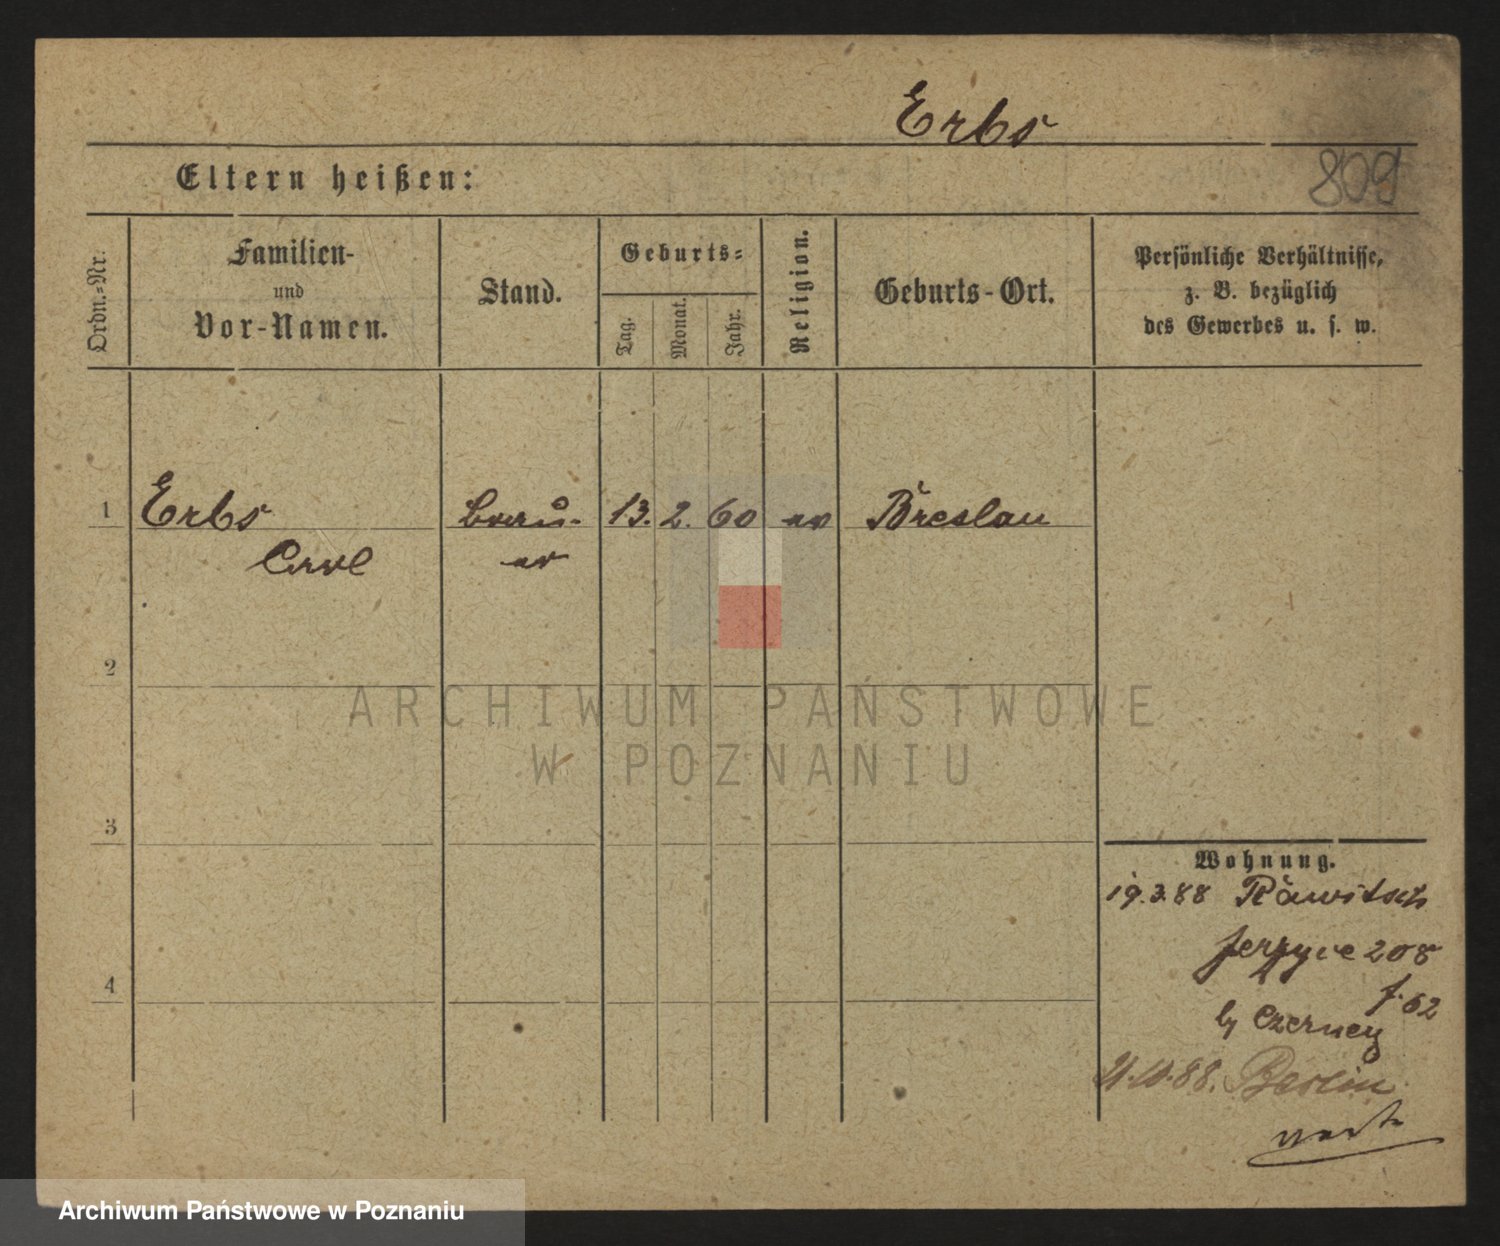 Erbs
809
Eltern heißen:
Ordn.-Nr.
Familien-
und
Vor-Namen.
Stand.
Geburts-
Tag.
Monat.
Jahr.
Religion.
Geburts-Ort.
Persönliche Verhältnisse,
z. B. bezüglich
des Gewerbes u. s. w.
1 Erbs Brau- 13. 2. 60 ev Breslau
Carl er
2
ARCHIWUM PAŃSTWOWE
W POZNANIU
3
Wohnung.
19.3.88 Rawitsch
Jerzyce 208
4
f. 62
by Czerney
21.10.88. Berlin
Archiwum Państwowe w Poznaniu